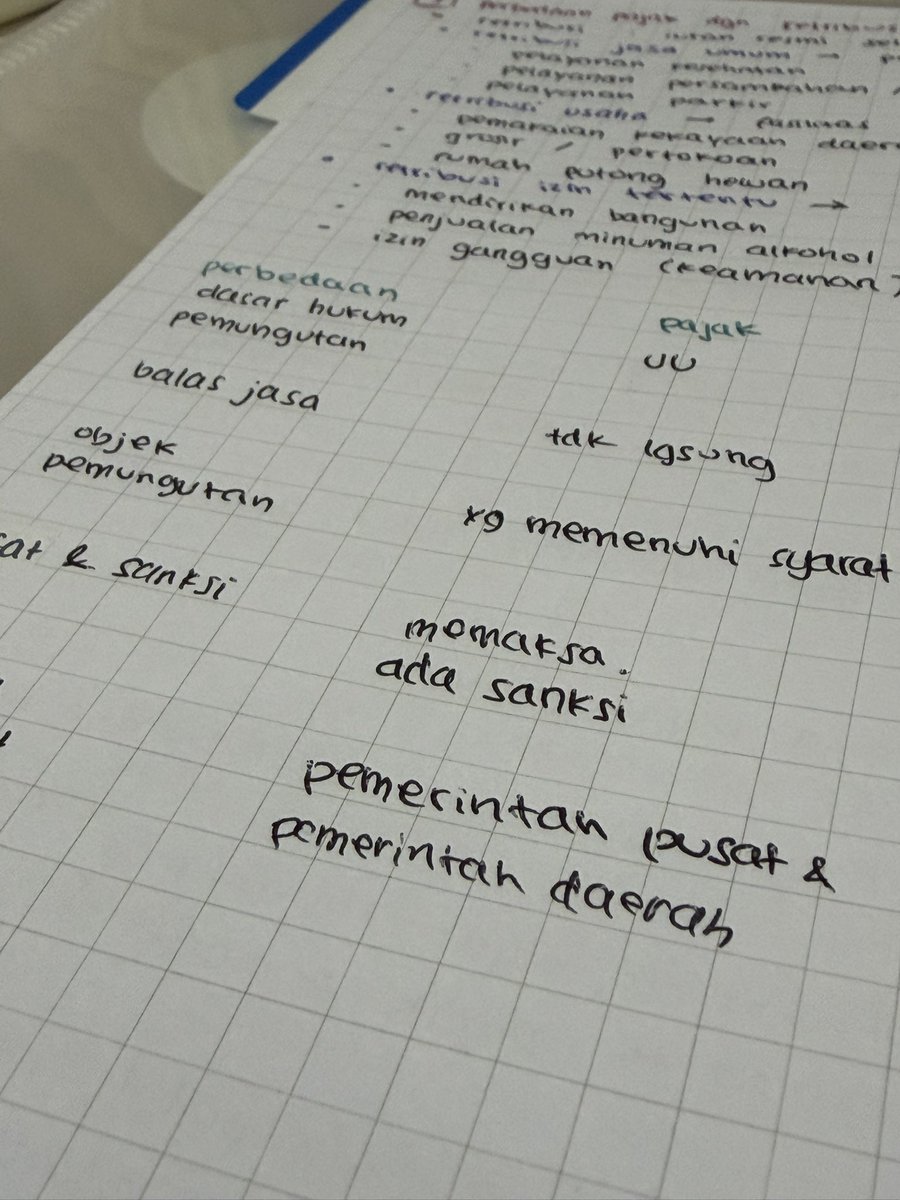 perbedaan pajak dan retribusi
retribusi iuran resmi
retribusi jasa umum →
pelayanan kesehatan
pelayanan persampahan
pelayanan parkir
• retribusi usaha →
- pemakaian kekayaan daer
- grosir / pertokoan
- rumah potong hewan
• retribusi izin tertentu →
- mendirikan bangunan
- penjualan minuman alkohol
- izin gangguan (keamanan)
perbedaan pajak
dasar hukum UU
pemungutan
balas jasa tdk lgsung
objek yg memenuhi syarat
pemungutan
at & sanksi memaksa.
ada sanksi
pemerintah pusat &
pemerintah daerah